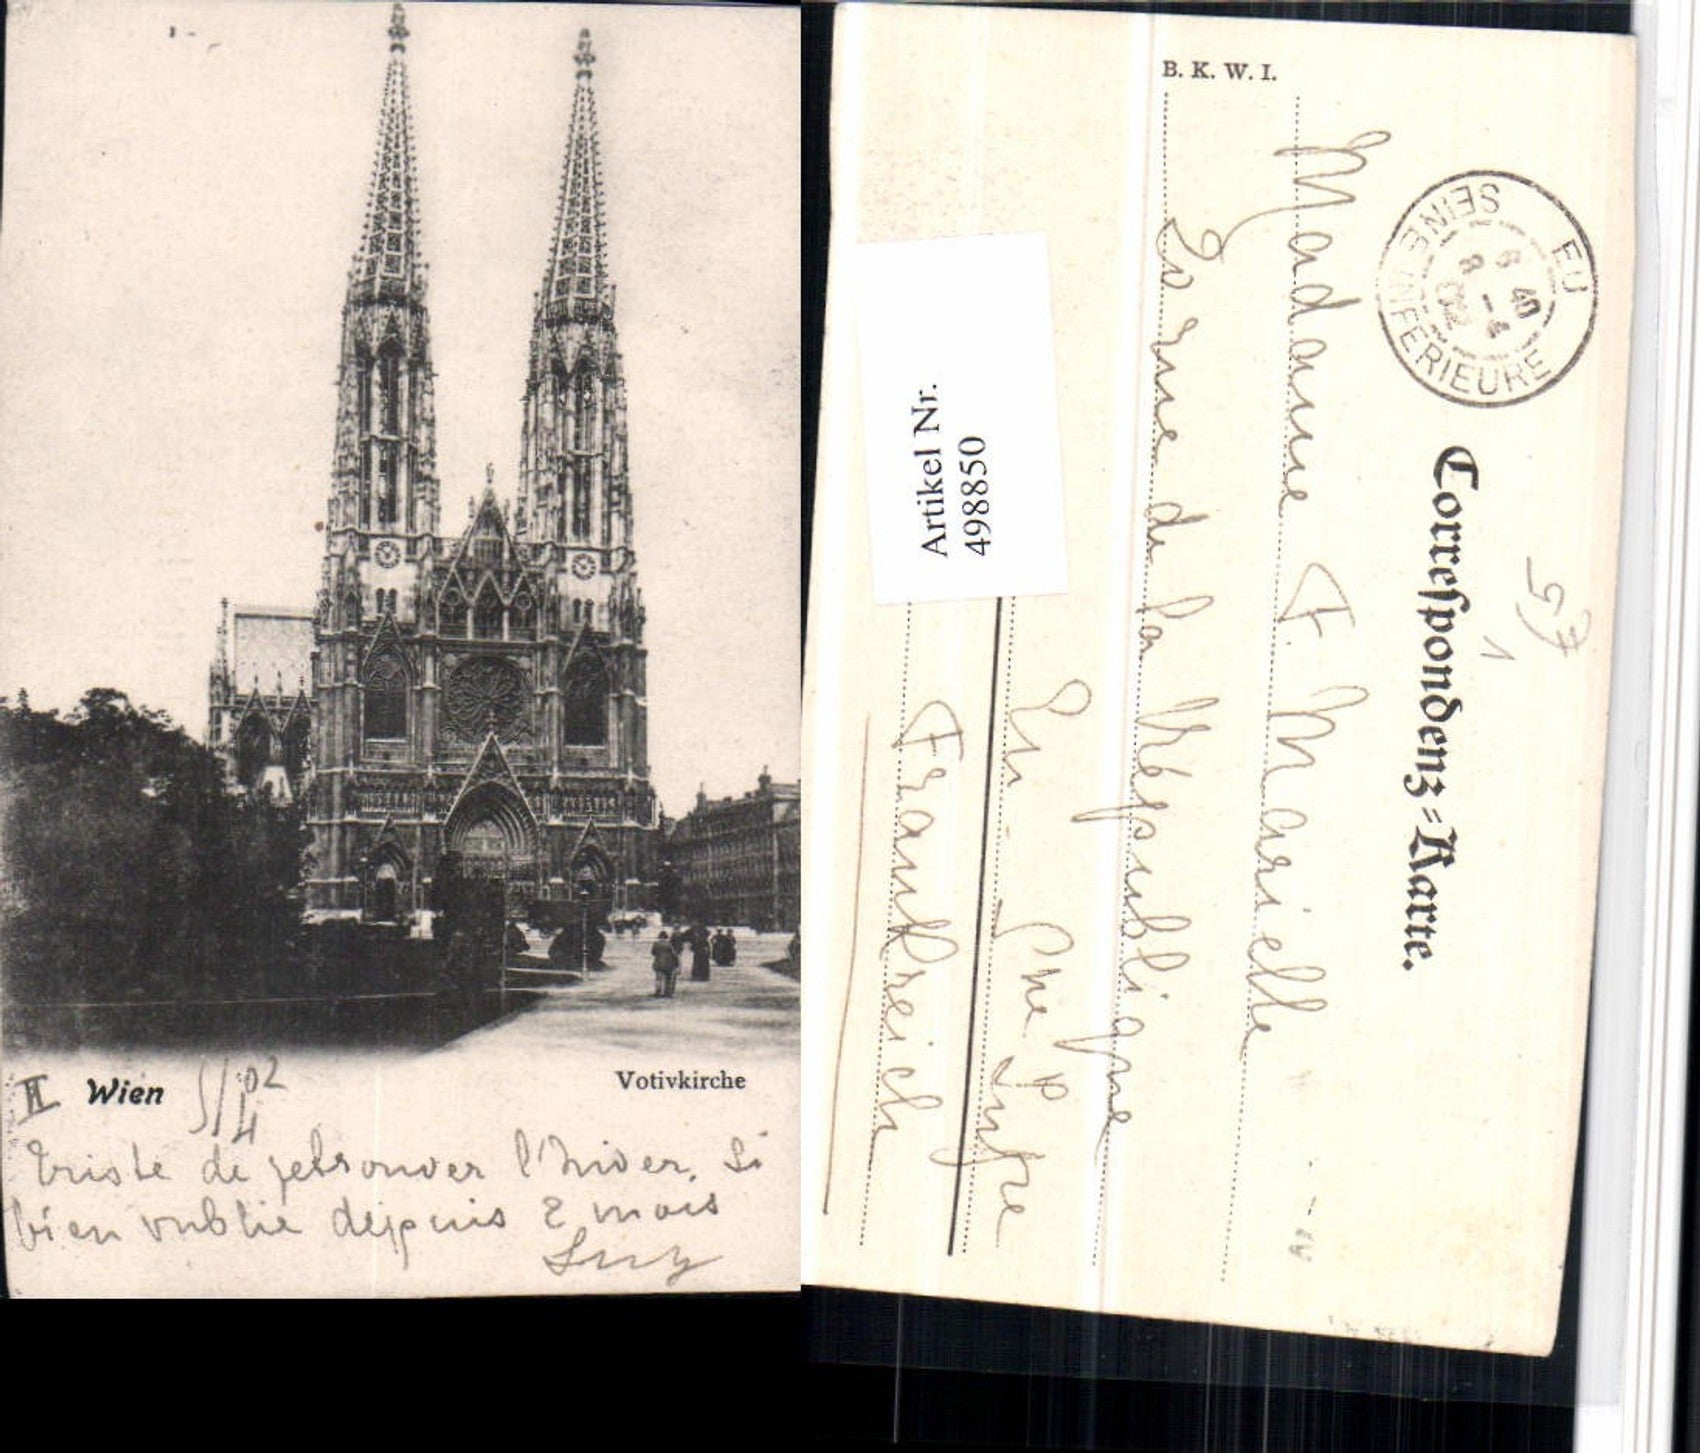 II Wien 5/4 02 Votivkirche
triste de retrouver l'hiver, si
bien oublié depuis 2 mois
Suzy
B. K. W. I.
EU
SEINE INFERIEURE
6 40
8 - 4
02
Correspondenz-Karte.
57
1
Madame F. Marielle
20 rue de la République
Eu - Sne Infre
Frankreich
Artikel Nr.
498850